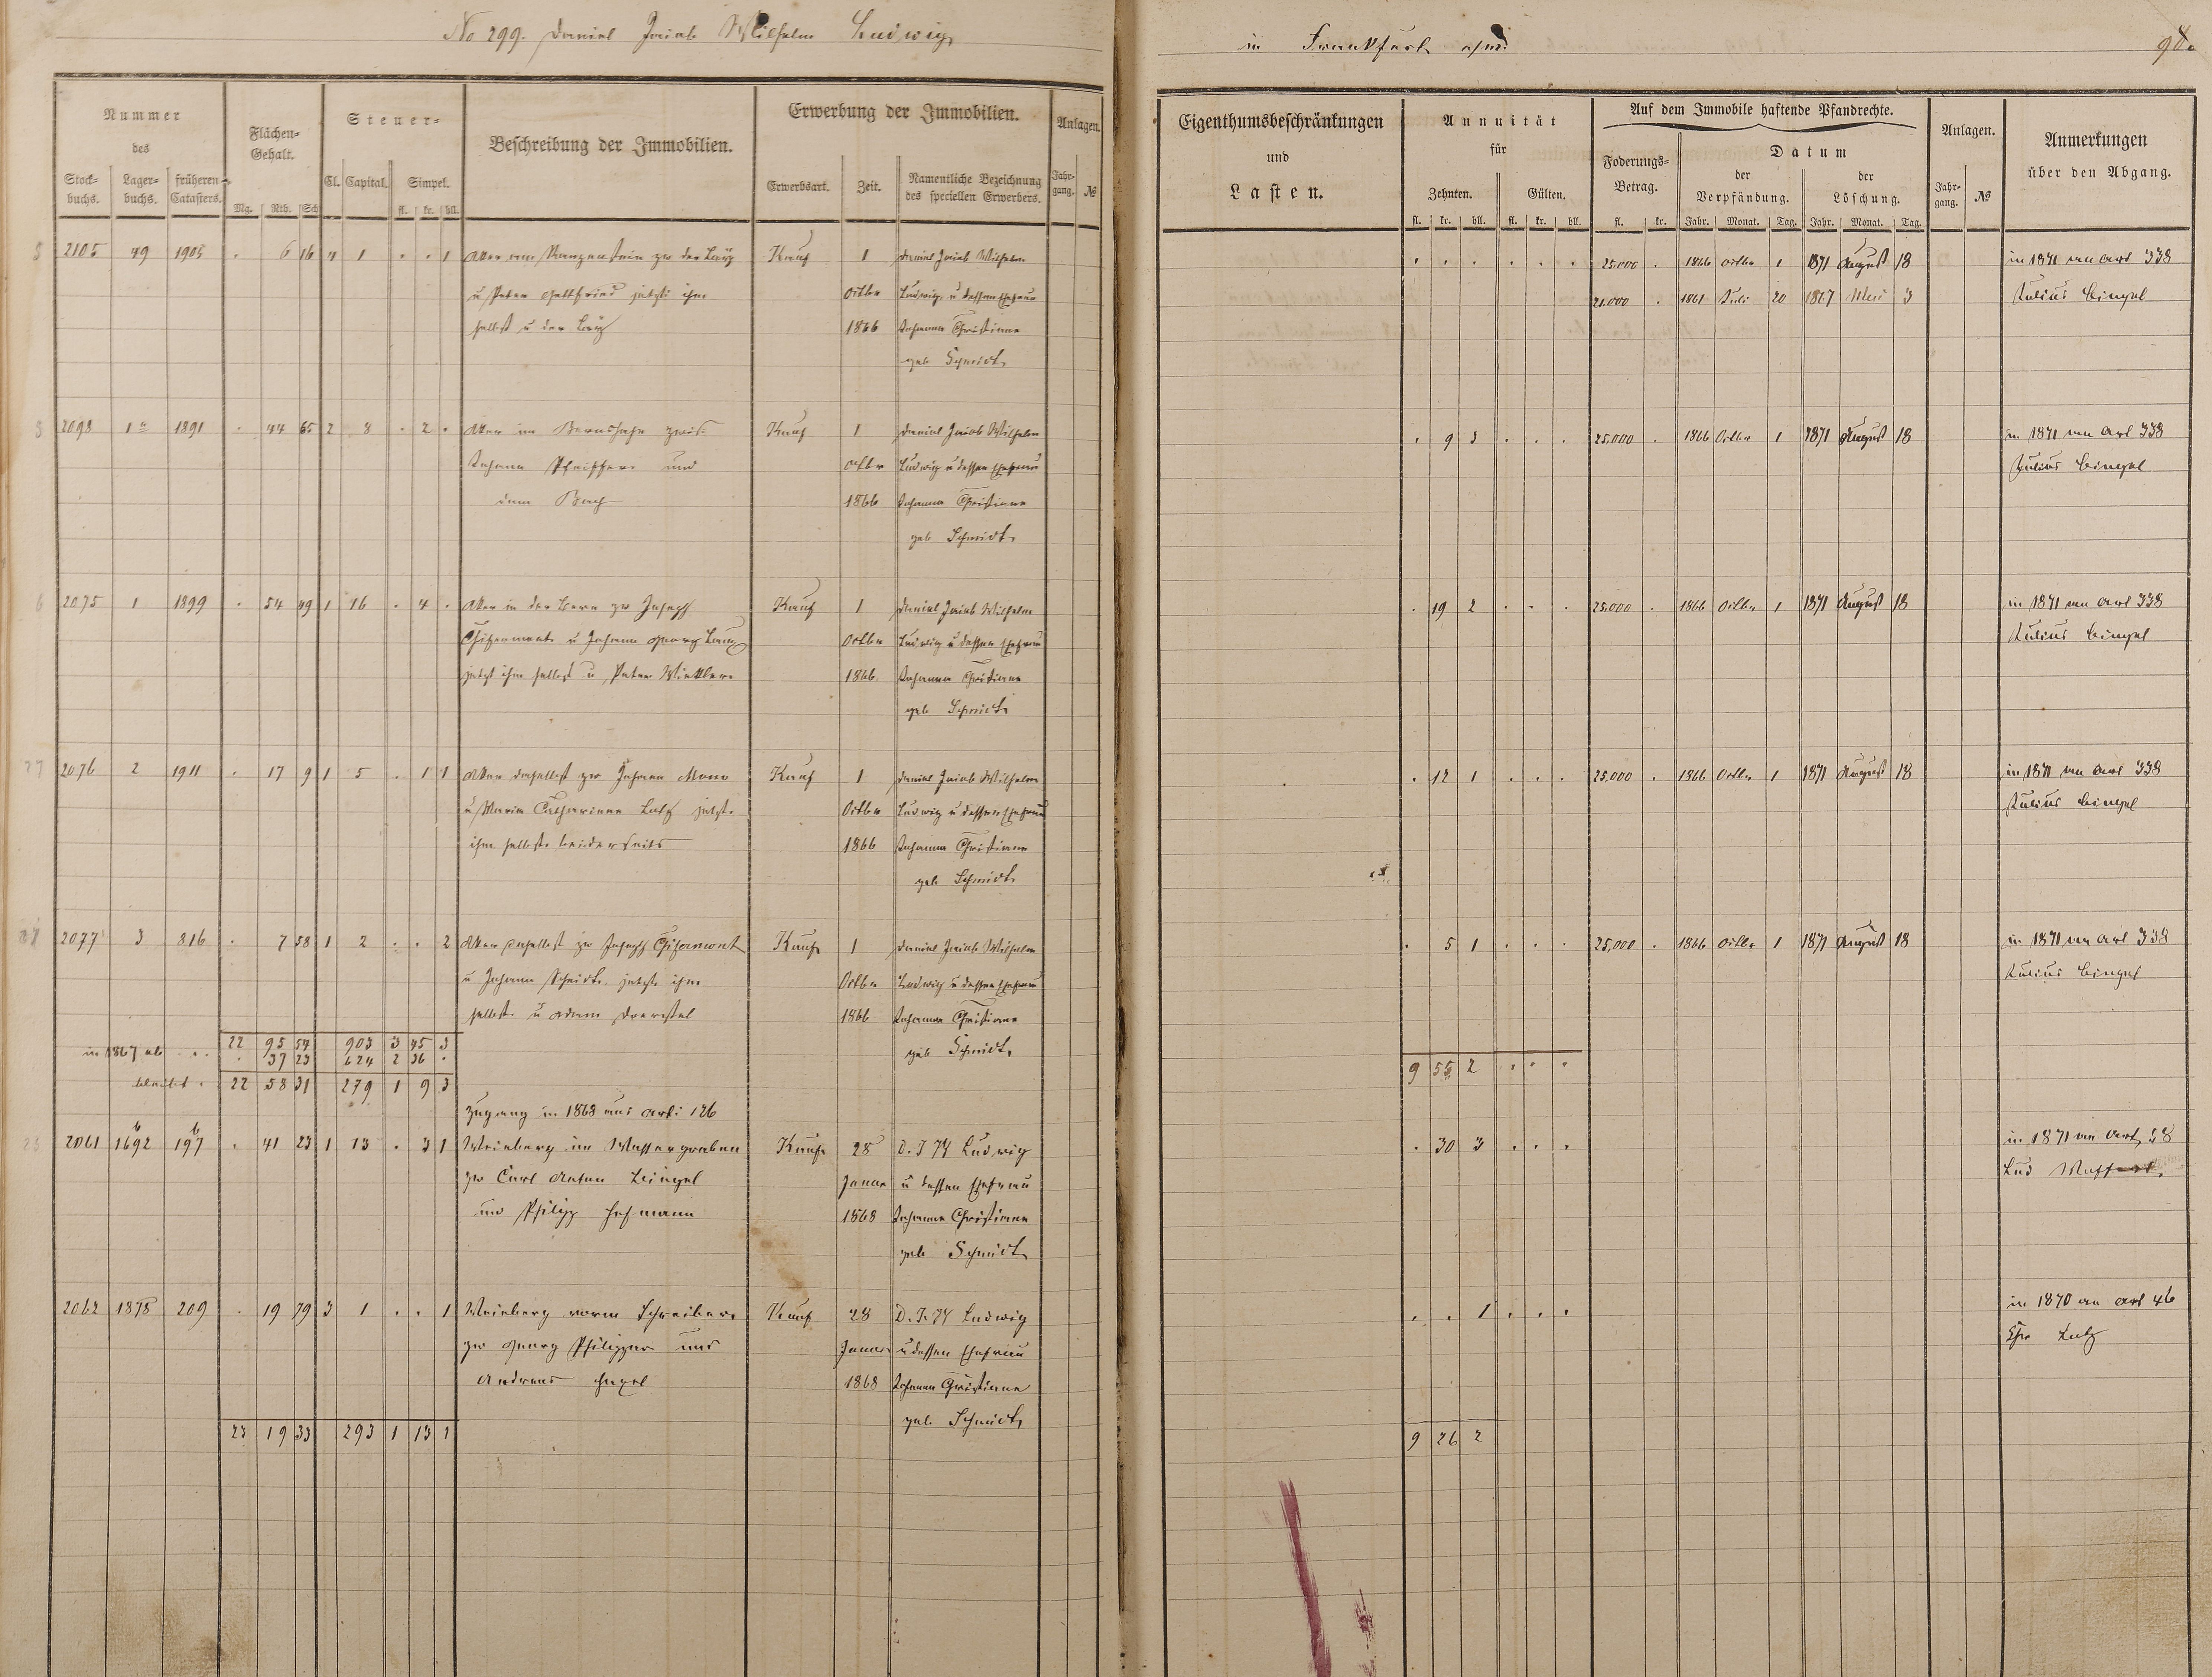 No 299. Daniel Jacob Wilhelm Ludwig
in Frankfurt a/m:
98.
Nummer des
Stock-buchs. Lager-buchs. früheren Catasters.
Flächen-Gehalt.
Mg. Rth. Sch
Steuer-
Cl. Capital. Simpel.
fl. kr. hll.
Beschreibung der Immobilien.
Erwerbung der Immobilien.
Erwerbsart. Zeit. Namentliche Bezeichnung des speciellen Erwerbers.
Anlagen.
Jahr-gang. №
Eigenthumsbeschränkungen
und
Lasten.
Annuität
für
Zehnten. Gülten.
fl. kr. hll. fl. kr. hll.
Auf dem Immobile haftende Pfandrechte.
Foderungs-Betrag.
fl. kr.
Datum
der Verpfändung. der Löschung.
Jahr. Monat. Tag. Jahr. Monat. Tag.
Anlagen.
Jahr-gang. №
Anmerkungen
über den Abgang.
2105 49 1905 . 6 16 4 1 . . 1 Acker am zu der
Kauf 1 Daniel Jacob Wilhelm
25,000 . 1866 Octbr 1 1871 August 18 in 1871 an Art 338
u Peter Gottfried jetzt ihm Octbr Ludwig u dessen Ehefrau
21,000 . 1861 Juli 20 1867 Mai 3 Julius Bingel
selbst u der 1866 Johanna Christiane
geb Schmidt.
2098 1a 1891 . 44 65 2 8 . 2 . Acker im zwis.
Kauf 1 Daniel Jacob Wilhelm
. 9 3 . . . 25,000 . 1866 Octbr 1 1871 August 18 in 1871 an Art 338
Johann Pfeiffer und Octbr Ludwig u dessen Ehefrau
Julius Bingel
dem Bach 1866 Johanna Christiane
geb Schmidt.
6 2075 1 1899 . 54 49 1 16 . 4 . Acker in der zw Joseph
Kauf 1 Daniel Jacob Wilhelm
. 19 2 . . . 25,000 . 1866 Octbr 1 1871 August 18 in 1871 an Art 338
u Johann Georg Octbr Ludwig u dessen Ehefrau
Julius Bingel
jetzt ihm selbst u Peter Winkler 1866. Johanna Christiane
geb Schmidt.
2076 2 1911 . 17 9 1 5 . 1 1 Acker daselbst zw Johann
Kauf 1 Daniel Jacob Wilhelm
. 12 1 . . . 25,000 . 1866 Octbr 1 1871 August 18 in 1871 an Art 338
u Maria Catharina jetzt Octbr Ludwig u dessen Ehefrau
Julius Bingel
ihm selbst beiderseits 1866 Johanna Christiane
geb Schmidt.
2077 3 816 . 7 58 1 2 . . 2 Acker daselbst zw Joseph
Kauf 1 Daniel Jacob Wilhelm
. 5 1 . . . 25,000 . 1866 Octbr 1 1871 August 18 in 1871 an Art 338
u Johann Scheidt. jetzt ihm Octbr Ludwig u dessen Ehefrau
Julius Bingel
selbst u Adam 1866 Johanna Christiane
geb Schmidt.
22 95 54 903 3 45 3
in 1867 ab . . . 37 23 624 2 36 .
9 55 2 . . .
bleibt . 22 58 31 279 1 9 3
Zugang in 1868 aus Art: 126
2061 1692 b 197 b . 41 23 1 13 . 3 1 Weinberg im Wassergraben
Kauf 28 D. J W Ludwig
. 30 3 . . . in 1871 an Art. 58
zw Carl Anton Bingel Januar u dessen Ehefrau
Lud
und Philipp Hofmann 1868 Johanna Christiane
geb Schmidt.
2062 1878 209 . 19 79 3 1 . . 1 Weinberg vorm Schreiber
Kauf 28 D. J. W Ludwig
. . 1 . . . in 1870 an Art 46
zw Georg Philipps und Januar u dessen Ehefrau
Lutz
Andreas 1868 Johanna Christiane
geb. Schmidt.
23 19 33 293 1 13 1
9 26 2